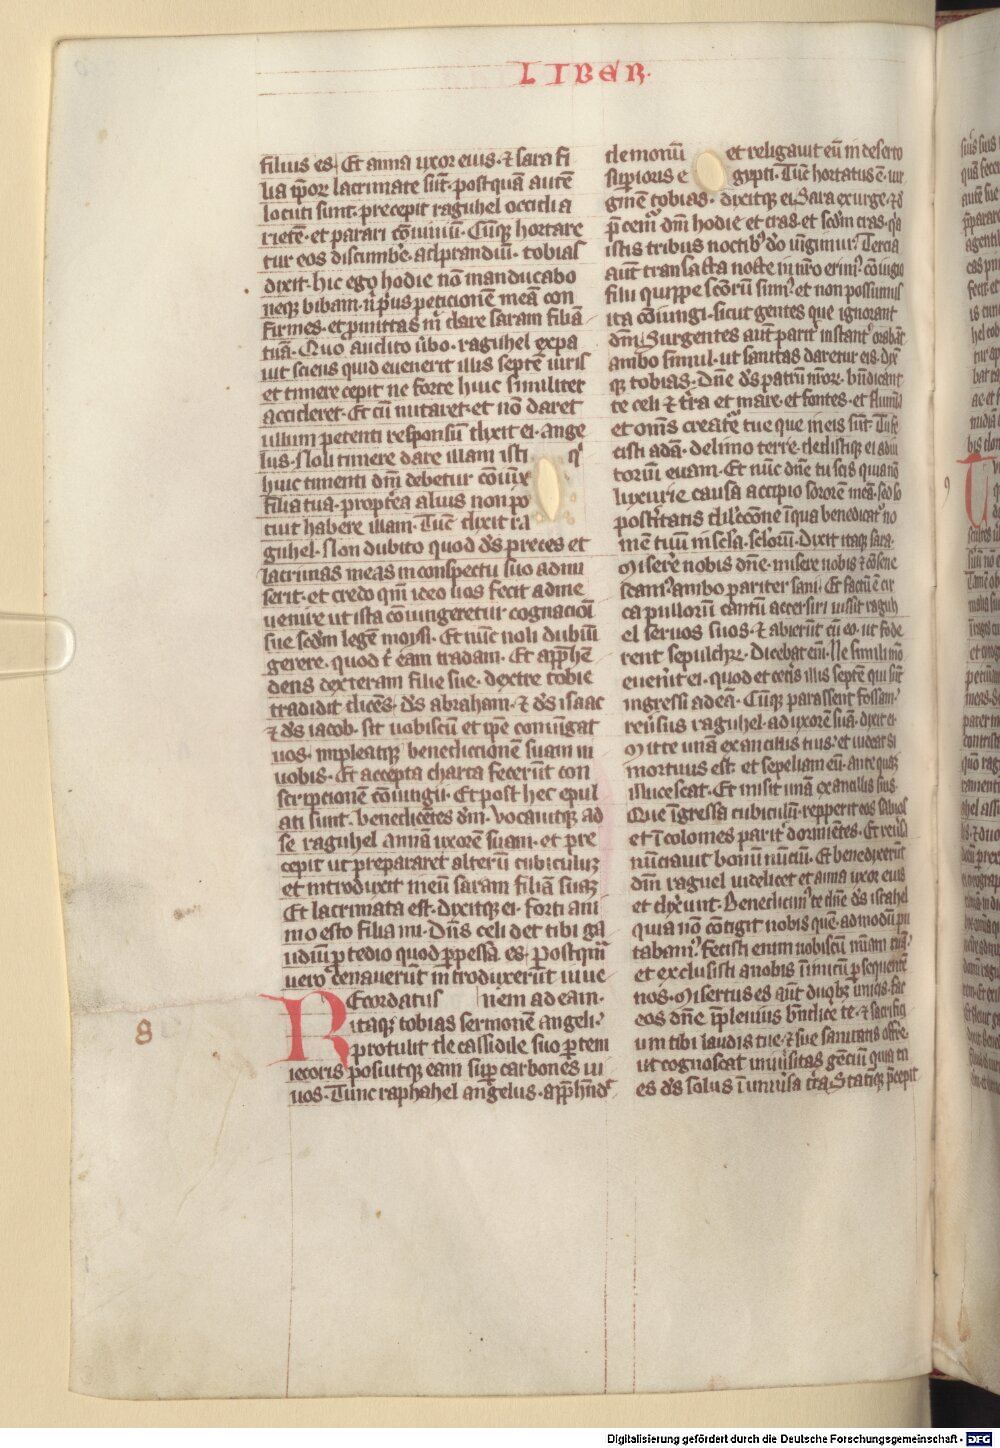 LIBER.
filius es. Et anna uxor eius. ⁊ sara fi
lia ip̄or lacrimate sūt. postquā autē
locuti sunt. precepit raguhel occidi a
rietē. et parari cōuiuiū. Cūq̄ hortare
tur eos discumbe͛. ad prandiū. tobias
dixit. hic ego hodie nō manducabo
neq̄ bibam. n̄ p͛us peticionē meā con
firmes. et p̄mittas m̄ dare saram filiā
tuā. Quo audito ūbo. raguhel expa
uit sciens quid euenerit illis septē uiris
et timere cepit ne forte huic similiter
accideret. Et cū nutaret. et nō daret
ullum petenti responsū dixit ei. ange
lus. Noli timere dare illam isti qͥ
huic timenti dm̄ debetur cōiux
filia tua. propt͛ea alius non po
tuit habere illam. Tūc dixit ra
guhel. Non dubito quod d͛s preces et
lacrimas meas in conspectu suo admi
serit. et credo qm̄ ideo uos fecit ad me
uenire ut ista cōiungeretur cognacioī
sue scd͛m legē moysi. Et nūc noli dubiū
gerere. quod t͛ eam tradam. Et app̄hē
dens dexteram filie sue. dextre tobie
tradidit dicēs. d͛s abraham. ⁊ d͛s isaac
⁊ d͛s iacob. sit uobiscū et ip̄e coniūgat
uos. impleatq̄ benediccionē suam in
uobis. Et accepta charta fecerūt con
scripcionē cōiugii. Et post hec epul
ati sunt. benedicētes dm̄. Vocauitq̄ ad
se raguhel annā uxorē suam. et pre
cepit ut prepararet alterū cubiculuꝫ
et introduxit meū saram filiā suaꝫ
Et lacrimata est. dixitq̄ ei. forti ani
mo esto filia mi. Dn̄s celi det tibi ga
udiū p̱ tedio quod p̱pessa es. Postquā
uero cenauerūt introduxerūt iuue
REcordatus nem ad eam.
itaq̄ tobias sermonē angeli.
protulit de cassidile suo p̱tem
iecoris posuitq̄ eam sup̱ carbones ui
uos. Tunc raphahel angelus. app̄hn̄d͛
8
demoniū et religauit eū in deserto
sup̱ioris e gypti. Tūc hortatus ē. uir
ginē tobias. dixitq̄ ei. Sara exurge. ⁊
istis tribus noctib͛ d͛o iūgimur. Tercia
aūt transacta nocte in nr̄o erim͛. cōiugio
filii quippe sc̄orū sum͛. et non possumus
ita cōiungi. sicut gentes que ignorant
dm̄. Surgentes aūt parit͛ instant͛ orabāt
ambo simul. ut sanitas daretur eis. dix̄
q̄ tobias. Dn̄e d͛s patrū nr̄or. bn̄dicant
te celi ⁊ t͛ra et mare. et fontes. et flumīa
et om̄s creat͛e tue que in eis sūt. Tu fe
cisti adā. de limo terre. dedistiq̄ ei adiu
toriū euam. Et nūc dn̄e tu scis quia nō
luxurie causa accipio sororē meā. sed so
la post͛itatis dilecc͛one ī qua benedicat͛ no
mē tuū in sc͛la sc͛lorū. Dixit itaq̄ sara.
Misere͛ nobis dn̄e. misere nobis ⁊ cōsene
scam͛ ambo pariter sani. Et factū ē cir
ca pullorū cantū accersiri iussit raguh
el seruos suos. ⁊ abierūt cū eo. ut fode
rent sepulchꝝ. Dicebat eīm. Ne simili mō
euen͛it ei. quod et cet͛is illis septē qui sūt
ingressi ad eā. Cūq̄ parassent fossam.
reu͛sus raguhel. ad uxorē suā. dixit ei.
Mitte unā ex ancillis tuis. et uideat si
mortuus est. et sepeliam eū. anteq̄ꝫ
illucescat. Et misit unā ex ancillis suis.
Que īgressa cubiculū. repperit eos saluos
et ī colomes parit͛ dormiētes. Et reu͛sa
nūciauit bonū nūciū. Et benedixerūt
dm̄ raguel uidelicet et anna uxor eius
et dix͛unt. Benedicim͛ te dn̄e d͛s israhel
quia nō cōtigit nobis quē admodū pu
tabam͛. Fecisti enim nobiscū m̄iam tuā.
et exclusisti a nobis inimicū p̱sequentē
nos. Misertus es aūt duobꝫ unicis. fac
eos dn̄e īplenius bn̄dic͛e te. ⁊ sacrifici
um tibi laudis tue. ⁊ sue sanitatis offre
ut cognoscat uniu͛sitas gēciū quia tu
es d͛s solus ī uniu͛sa t͛ra. Statiq̄ p̄cepit
Digitalisierung gefördert durch die Deutsche Forschungsgemeinschaft - DFG